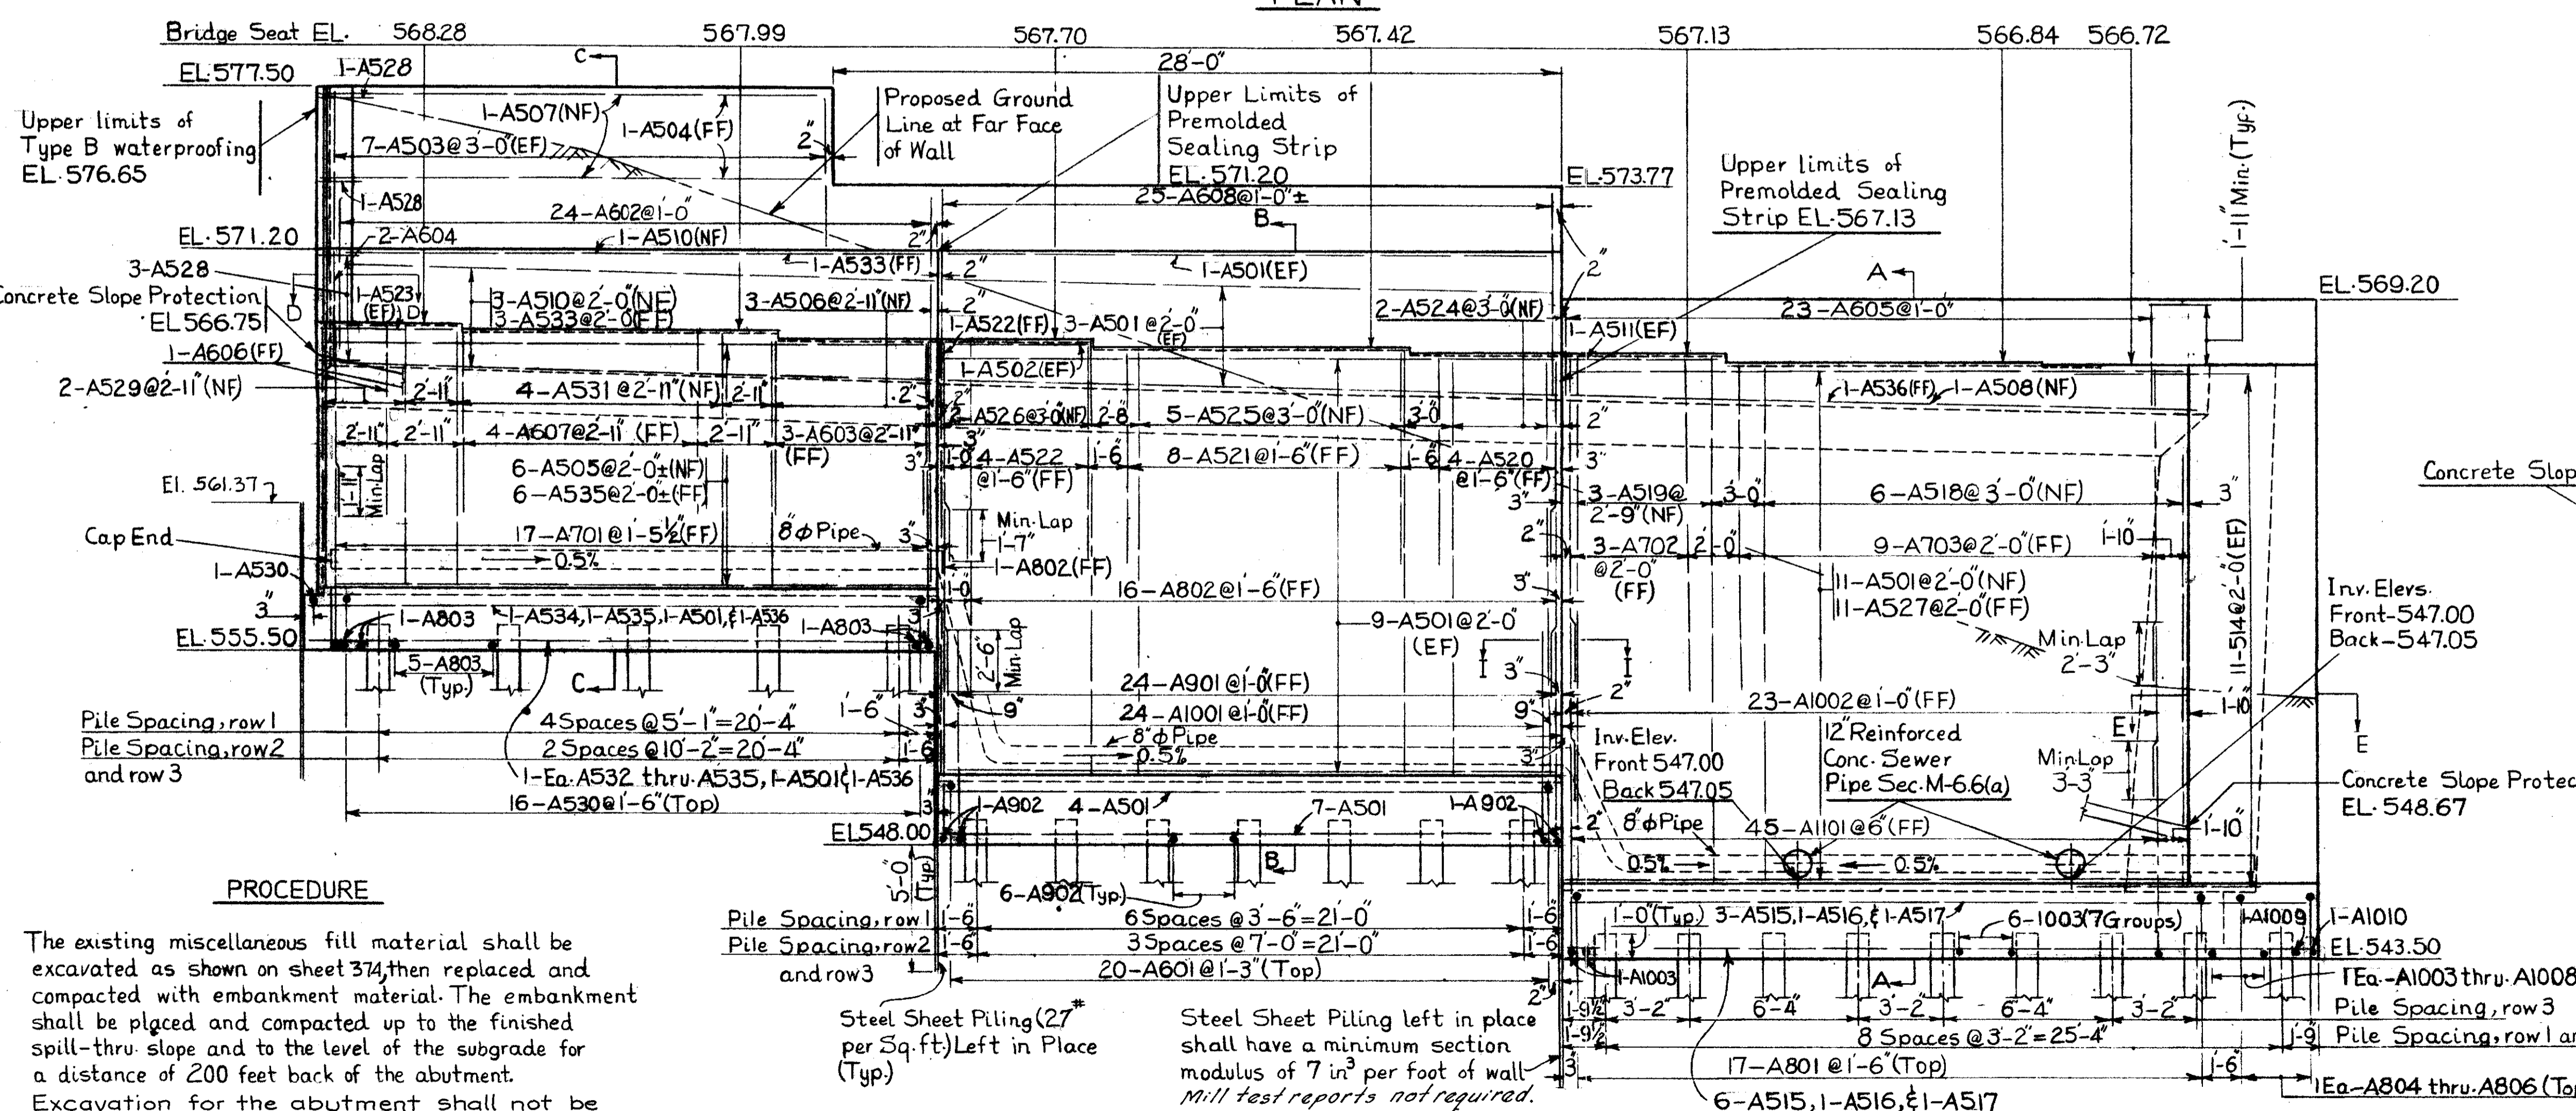 PLAN
Bridge Seat EL. 568.28 567.99 567.70 567.42 567.13 566.84 566.72
EL.577.50
1-A528
C
28'-0"
Upper limits of
Type B waterproofing
EL.576.65
1-A507(NF)
1-A504(FF)
7-A503@3'-0"(EF)
2"
Proposed Ground
Line at Far Face
of Wall
Upper Limits of
Premolded
Sealing Strip
EL.571.20
EL.573.77
Upper limits of
Premolded Sealing
Strip EL.567.13
1'-11" Min.(Typ.)
1-A528
24-A602@1'-0"
2"
25-A608@1'-0"±
B
2"
EL.571.20
2-A604
1-A510(NF)
1-A533(FF)
2"
1-A501(EF)
A
EL.569.20
3-A528
Concrete Slope Protection
EL 566.75
D
1-A523
(EF)
D
3-A510@2'-0"(NF)
3-A533@2'-0"(FF)
3-A506@2'-11"(NF)
2"
1-A522(FF)
3-A501@2'-0"
(EF)
2-A524@3'-0"(NF)
1-A511(EF)
23-A605@1'-0"
1-A606(FF)
1-A502(EF)
2-A529@2'-11"(NF)
2'-11"
4-A531@2'-11"(NF)
2'-11"
2"
2"
1-A536(FF)
1-A508(NF)
2-A526@3'-0"(NF)
2'-8"
5-A525@3'-0"(NF)
3'-0"
2"
2'-11"
2'-11"
4-A607@2'-11"(FF)
2'-11"
3-A603@2'-11"
(FF)
3"
3"
1'-0"
4-A522
@1'-6"(FF)
1'-6"
8-A521@1'-6"(FF)
1'-6"
4-A520
@1'-6"(FF)
3"
El. 561.37
1'-11"
Min.Lap
6-A505@2'-0"±(NF)
6-A535@2'-0"±(FF)
3"
3-A519@
2'-9"(NF)
3'-0"
6-A518@3'-0"(NF)
3"
Concrete Slop
Cap End
17-A701@1'-5½"(FF)
8"ϕPipe
3"
0.5%
Min.Lap
1'-7"
1-A802(FF)
2"
3-A702
@2'-0"
(FF)
2'-0"
9-A703@2'-0"(FF)
1'-10"
11-514@2'-0"(EF)
1-A530
3"
1'-0"
16-A802@1'-6"(FF)
3"
11-A501@2'-0"(NF)
11-A527@2'-0"(FF)
Inv. Elevs.
Front-547.00
Back-547.05
1-A803
1-A534,1-A535,1-A501,&1-A536
1-A803
3"
9-A501@2'-0"
(EF)
EL.555.50
5-A803
(Typ.)
C
2'-6"
Min.Lap
I
I
3"
Min.Lap
2'-3"
24-A901@1'-0"(FF)
2"
23-A1002@1'-0"(FF)
1'-10"
Pile Spacing, row 1
4 Spaces @5'-1"=20'-4"
1'-6"
3"
9"
24-A1001@1'-0"(FF)
9"
E
E
Pile Spacing, row2
and row 3
2 Spaces @10'-2"=20'-4"
1'-6"
8"ϕPipe
0.5%
3"
Inv. Elev.
Front 547.00
Back 547.05
12"Reinforced
Conc. Sewer
Pipe Sec.M-6.6(a)
Min.Lap
3'-3"
1-Ea. A532 thru. A535, 1-A501&1-A536
16-A530@1'-6"(Top)
3"
Concrete Slope Protec
EL. 548.67
1-A902
4-A501
7-A501
1-A902
EL548.00
5'-0"
(Typ.)
B
2"
8"ϕPipe
45-A1101@6"(FF)
1'-10"
0.5%
0.5%
PROCEDURE
6-A902(Typ.)
Pile Spacing, row 1
1'-6"
6Spaces @3'-6"=21'-0"
1'-6"
1'-0"(Typ.)
3-A515,1-A516,&1-A517
6-1003(7Groups)
1-A1009
1-A1010
Pile Spacing, row2
and row3
1'-6"
3Spaces @7'-0"=21'-0"
1'-6"
EL.543.50
20-A601@1'-3"(Top)
2"
1-A1003
A
1Ea.-A1003 thru. A1008
1'-9½"
3'-2"
6'-4"
3'-2"
6'-4"
3'-2"
Pile Spacing, row 3
1'-9½"
8 Spaces @3'-2"=25'-4"
1'-9"
Pile Spacing, row 1 an
3"
17-A801@1'-6"(Top)
1'-6"
1Ea-A804 thru. A806 (To
6-A515,1-A516,&1-A517
The existing miscellaneous fill material shall be
excavated as shown on sheet 374, then replaced and
compacted with embankment material. The embankment
shall be placed and compacted up to the finished
spill-thru. slope and to the level of the subgrade for
a distance of 200 feet back of the abutment.
Excavation for the abutment shall not be
Steel Sheet Piling (27#
per Sq.ft.) Left in Place
(Typ.)
Steel Sheet Piling left in place
shall have a minimum section
modulus of 7 in³ per foot of wall
Mill test reports not required.